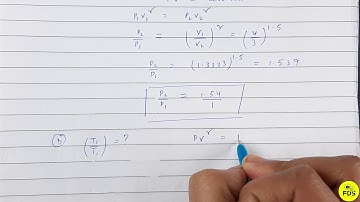 P₁V₁^γ = P₂V₂^γ
P₂/P₁ = (V₁/V₂)^γ = (4/3)^1.5
P₂/P₁ = (1.3333)^1.5 = 1.539
P₂/P₁ = 1.54/1
b) = ? PV^γ = 1
FDS